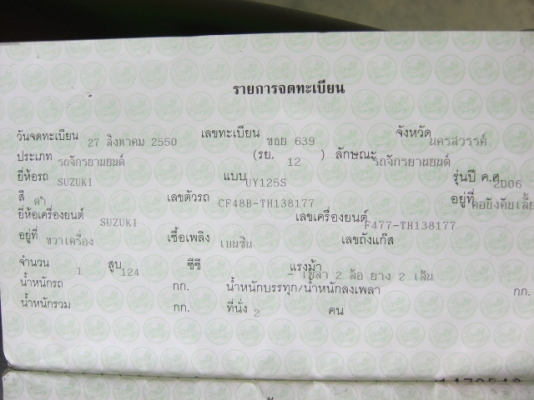 รายการจดทะเบียน
วันจดทะเบียน 27 สิงหาคม 2550 เลขทะเบียน ขธย 639 จังหวัด นครสวรรค์
ประเภท รถจักรยานยนต์ (รย. 12 ) ลักษณะ รถจักรยานยนต์
ยี่ห้อรถ SUZUKI แบบ UY125S รุ่นปี ค.ศ. 2006
สี ดำ เลขตัวรถ CF48B-TH138177 อยู่ที่ คอบังคับเลี้ย
ยี่ห้อเครื่องยนต์ SUZUKI เลขเครื่องยนต์ F477-TH138177
อยู่ที่ ขวาเครื่อง เชื้อเพลิง เบนซิน เลขถังแก๊ส
จำนวน 1 สูบ 124 ซีซี แรงม้า เพลา 2 ล้อ ยาง 2 เส้น
น้ำหนักรถ กก. น้ำหนักบรรทุก/น้ำหนักลงเพลา กก.
น้ำหนักรวม กก. ที่นั่ง 2 คน